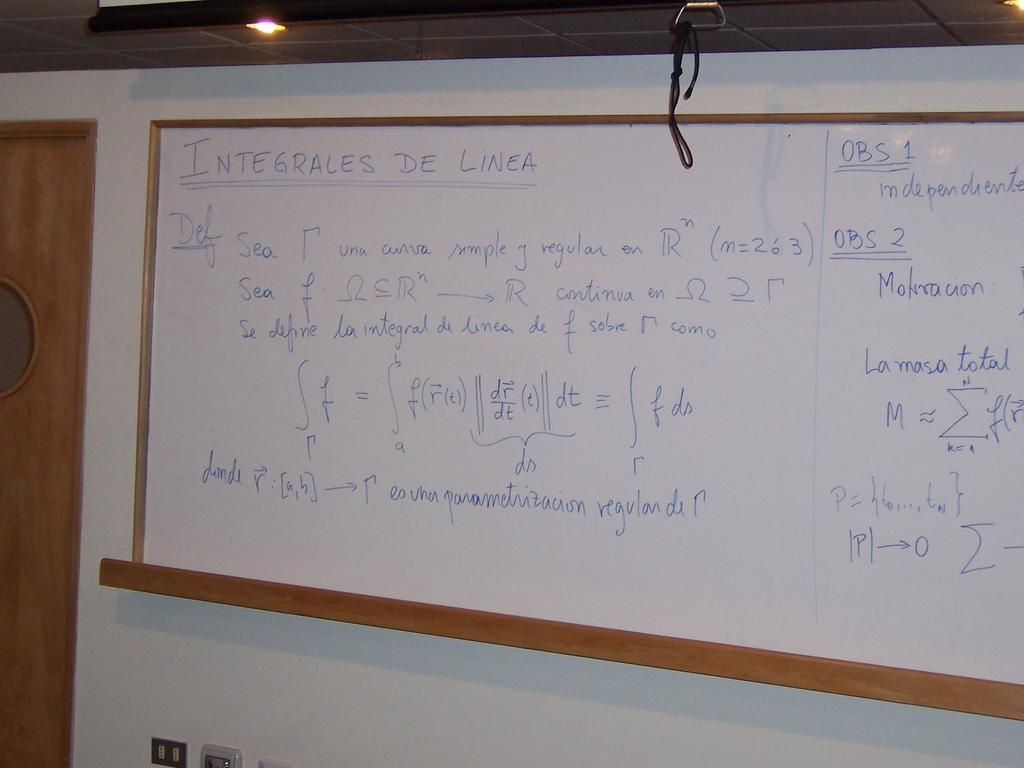 INTEGRALES DE LINEA
Def Sea Γ una curva simple y regular en ℝⁿ (n=2 ó 3)
Sea f: Ω ⊆ ℝⁿ ⟶ ℝ continua en Ω ⊇ Γ
Se define la integral de linea de f sobre Γ como
∫_Γ f = ∫_a^b f(r⃗(t)) ‖dr⃗/dt (t)‖ dt ≡ ∫_Γ f ds
ds
donde r⃗: [a,b] ⟶ Γ es una parametrizacion regular de Γ
OBS 1
independiente
OBS 2
Motivacion:
La masa total
M ≈ ∑_{k=1}^N f(r⃗
P = {t₀,..., t_N}
|P| → 0 ∑